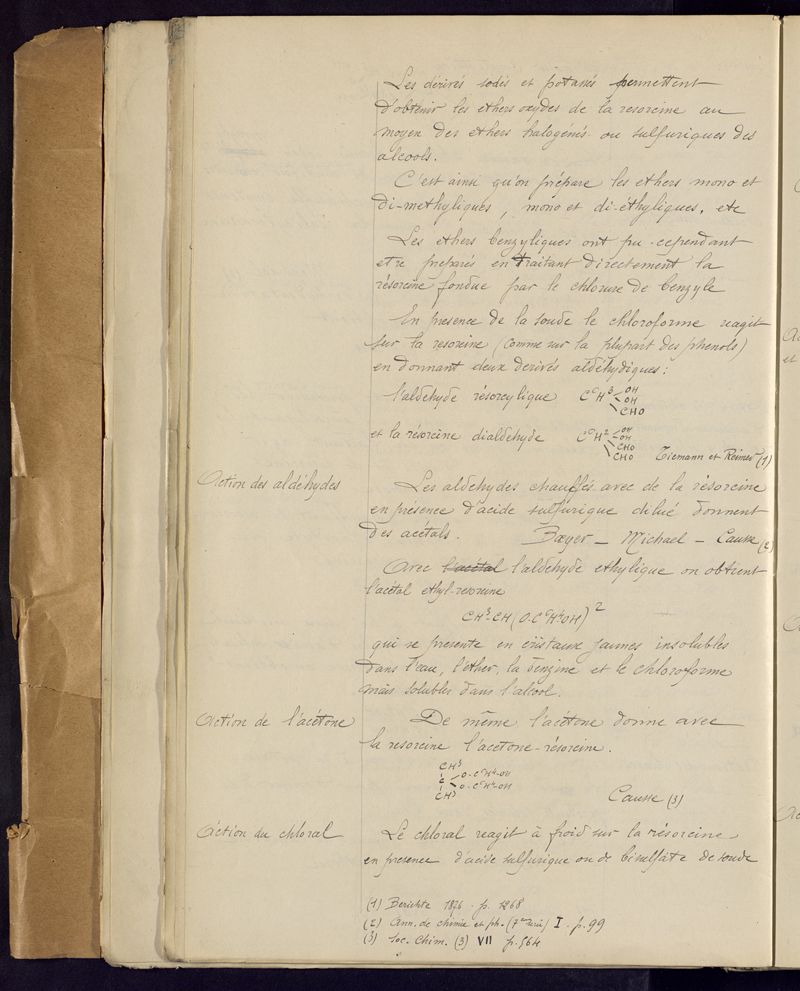 Les dérivés sodés et potassés permettent
d'obtenir les ethers oxydes de la resorcine au
moyen des ethers halogénés ou sulfuriques des
alcools.
C'est ainsi qu'on prépare les ethers mono et
di-methyliques, mono et di-éthyliques, etc
Les ethers benzyliques ont pu cependant
etre preparés en traitant directement la
résorcine fondue par le chlorure de benzyle
En presence de la soude le chloroforme reagit
sur la resorcine (comme sur la plupart des phenols)
en donnant deux derivés aldéhydiques :
l'aldehyde résorcylique C⁶H³ OH
OH
CHO
et la résorcine dialdehyde C⁶H² OH
OH
CHO
CHO Tiemann et Reimer (1)
Action des aldéhydes
Les aldehydes chauffés avec de la résorcine
en présence d'acide sulfurique dilué donnent
des acétals. Bæyer _ Michael _ Causse (2)
Avec l'acétal l'aldehyde ethylique on obtient
l'acétal ethyl-resorcine
CH³-CH(O.C⁶H⁴OH)²
qui se presente en cristaux jaunes insolubles
dans l'eau, l'éther, la benzine et le chloroforme
mais solubles dans l'alcool.
Action de l'acétone
De même l'acétone donne avec
la resorcine l'acetone-résorcine.
CH³
C O-C⁶H⁴-OH
O-C⁶H⁴-OH
CH³
Causse (3)
Action du chloral
Le chloral reagit à froid sur la résorcine
en presence d'acide sulfurique ou de bisulfate de soude
(1) Berichte 1876 . p. 1268
(2) Ann. de chimie et ph. (7e serie) I . p. 99
(3) Soc. Chim. (3) VII p. 564